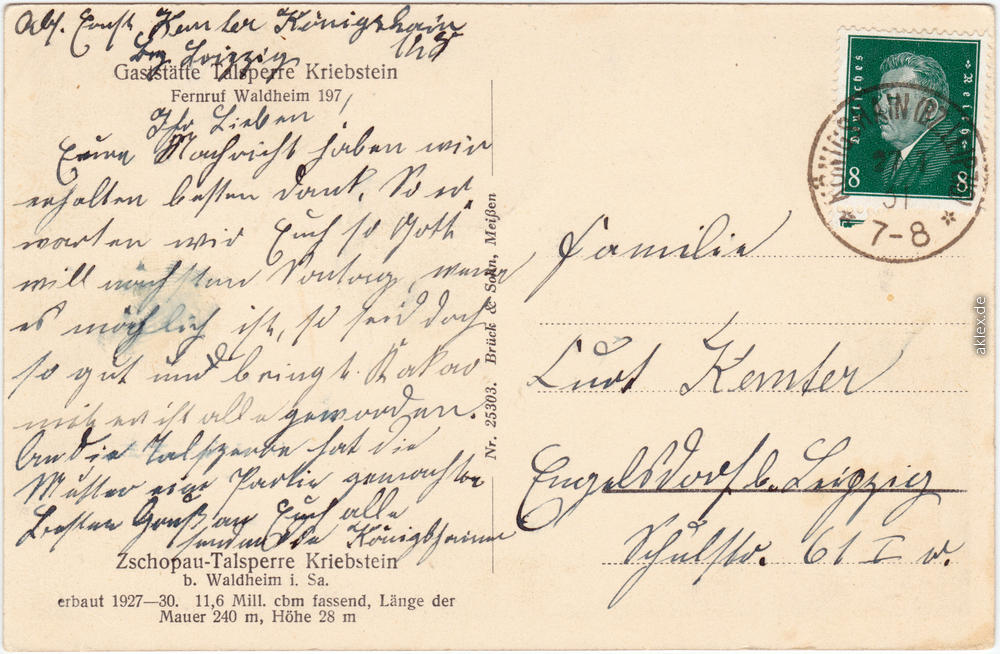 Abs. Ernst Kemter Königshain
Bez Leipzig
Gaststätte Talsperre Kriebstein
Fernruf Waldheim 197
Ihr Lieben!
Eure Nachricht haben wir
erhalten besten Dank. So er
warten wir Euch so Gott
will nächsten Sontag, wenn
es möchlich ist, so seid doch
so gut und bringt Kakao
mit er ist alle geworden.
An die Talsperre hat die
Mutter eine Partie gemacht
Besten Gruß an Euch alle
senden die Königshainer
Zschopau-Talsperre Kriebstein
b. Waldheim i. Sa.
erbaut 1927—30. 11,6 Mill. cbm fassend, Länge der
Mauer 240 m, Höhe 28 m
Nr. 25303. Brück & Sohn, Meißen
Deutsches Reich
8 8
KÖNIGSHAIN
31
7-8
Familie
Kurt Kemter
Engelsdorf b. Leipzig
Schulstr. 61 I r.
aklex.de